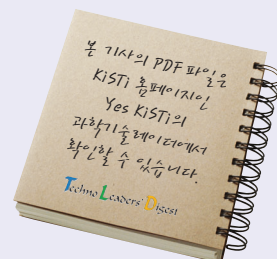 본 기사의 PDF 파일은
KiSTi 홈페이지인
Yes KiSTi의
과학기술레이더에서
확인할 수 있습니다
Techno Leaders' Digest